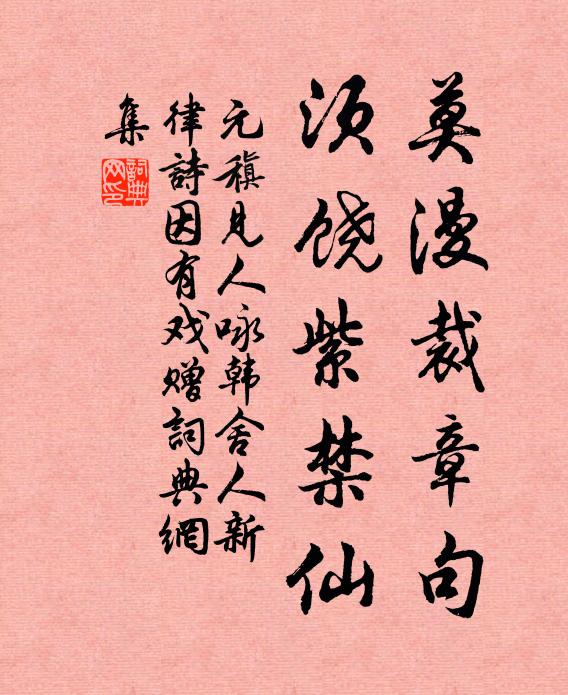 莫漫裁章句
须饶紫禁仙
元稹見人咏韩舍人新
律詩因有戏赠詞典網
集
詞典網印